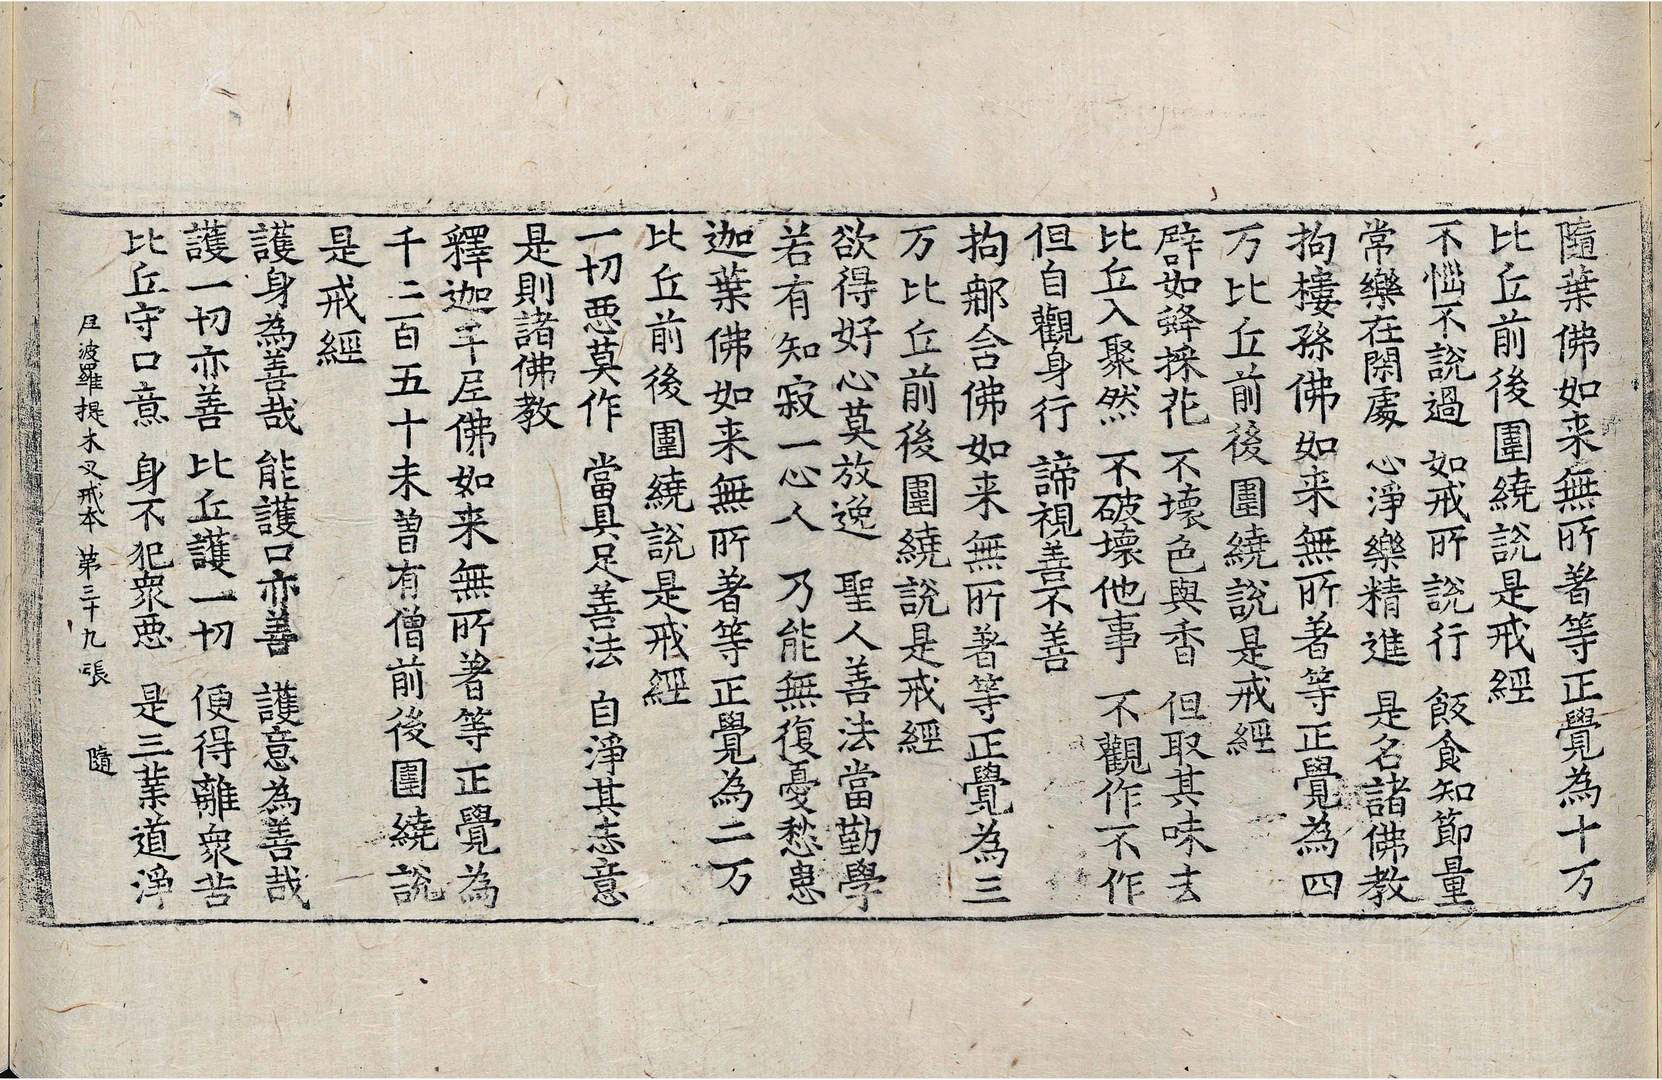 隨葉佛如来無所著等正覺為十万
比丘前後圍繞說是戒經
不惱不說過 如戒所說行 飯食知節量
常樂在閑處 心淨樂精進 是名諸佛教
拘樓孫佛如来無所著等正覺為四
万比丘前後圍繞說是戒經
辟如蜂採花 不壞色與香 但取其味去
比丘入聚然 不破壞他事 不觀作不作
但自觀身行 諦視善不善
拘郍含佛如来無所著等正覺為三
万比丘前後圍繞說是戒經
欲得好心莫放逸 聖人善法當勤學
若有知寂一心人 乃能無復憂愁患
迦葉佛如来無所著等正覺為二万
比丘前後圍繞說是戒經
一切惡莫作 當具足善法 自淨其志意
是則諸佛教
釋迦牟尼佛如来無所著等正覺為
千二百五十未曾有僧前後圍繞說
是戒經
護身為善哉 能護口亦善 護意為善哉
護一切亦善 比丘護一切 便得離衆苦
比丘守口意 身不犯衆惡 是三業道淨
尼波羅提木叉戒本 第三十九張 隨